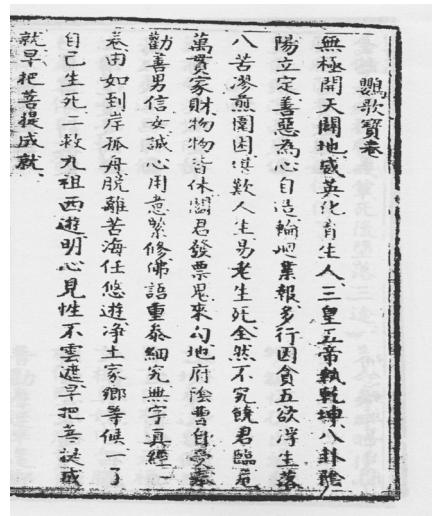 鸚歌寶卷
無極開天闢地感英化育生人三皇五帝執乾坤八卦陰
陽立定善惡為心自造輪迴業報多行因貪五欲浮生落
八苦漻煎圍困堪歎人生易老生死全然不究饒君臨危
萬貫家財物物皆休閻君發票鬼來勾地府陰曹自受
勸善男信女誠心用意緊修佛語重泰細究無字真經一
卷由如到岸孤舟脫離苦海任悠遊净土家鄉等候一了
自己生死二救九祖西遊明心見性不雲遮早把菩提成
就早把菩提成就